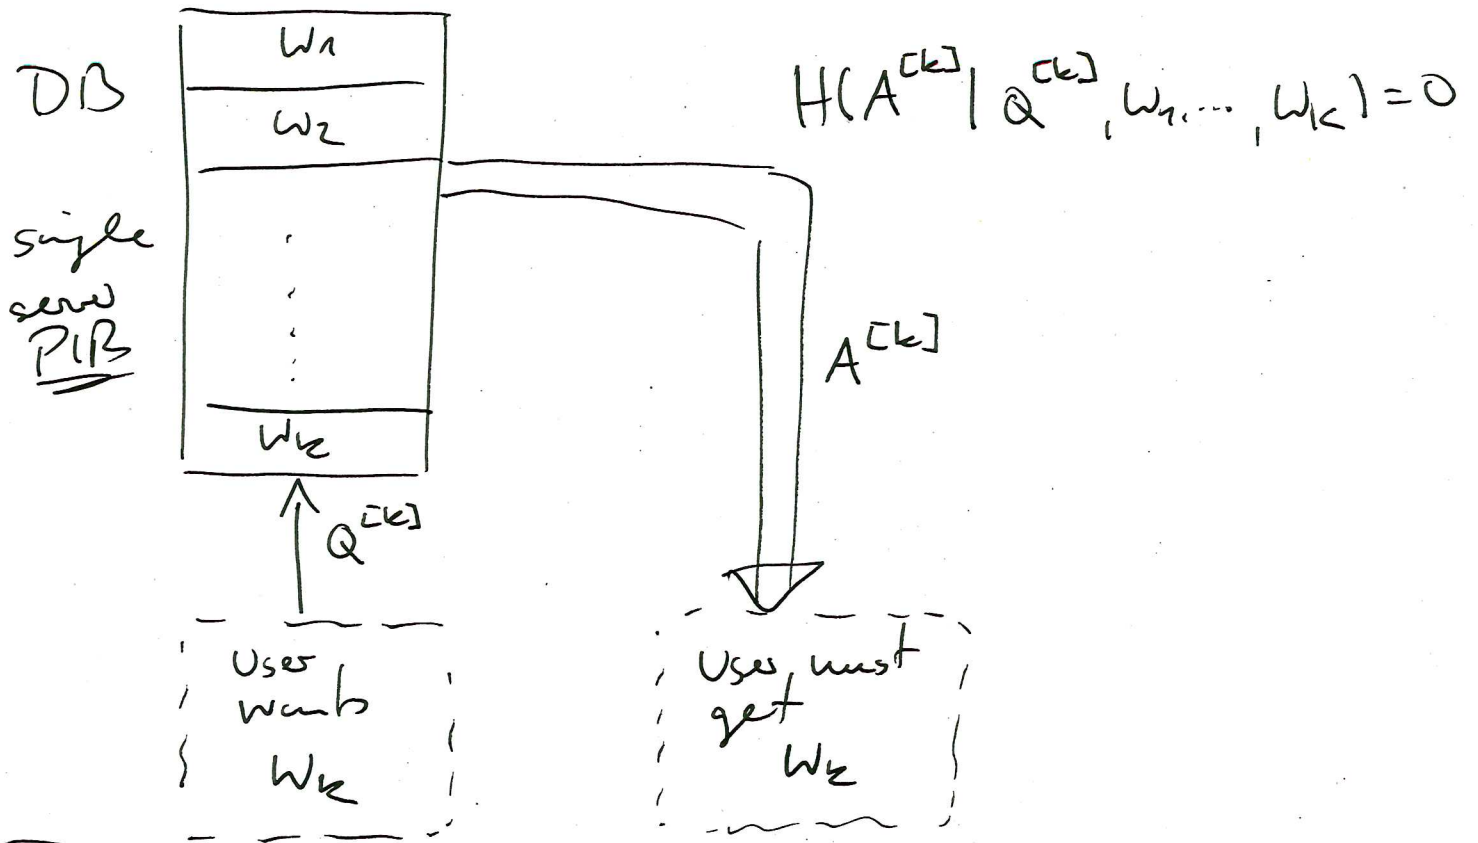 DB
W1
W2
single
server
PIR
WK
H(A^[k] | Q^[k], W1, ..., WK) = 0
A^[k]
Q^[k]
User
wants
Wk
User must
get
Wk